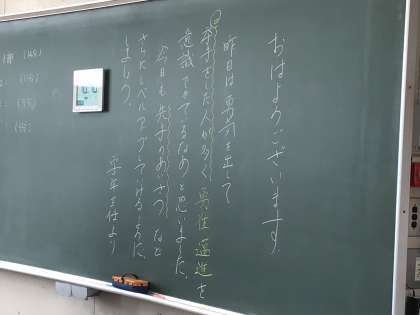 おはようございます。
昨日は勇気を出して
挙手をした人が多く、勇往邁進を
意識できてるなあと思いました。
今日も先手のあいさつなど
さらにレベルアップしていけるように
しましょう。
学年主任より